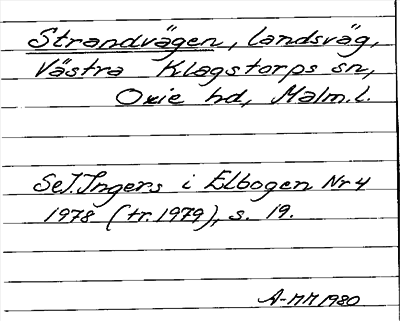 Strandvägen, landsväg,
Västra Klagstorps sn,
Oxie hd, Malm.l.
Se I. Ingers i Elbogen Nr 4
1978 (tr. 1979), s. 19.
A-MM 1980